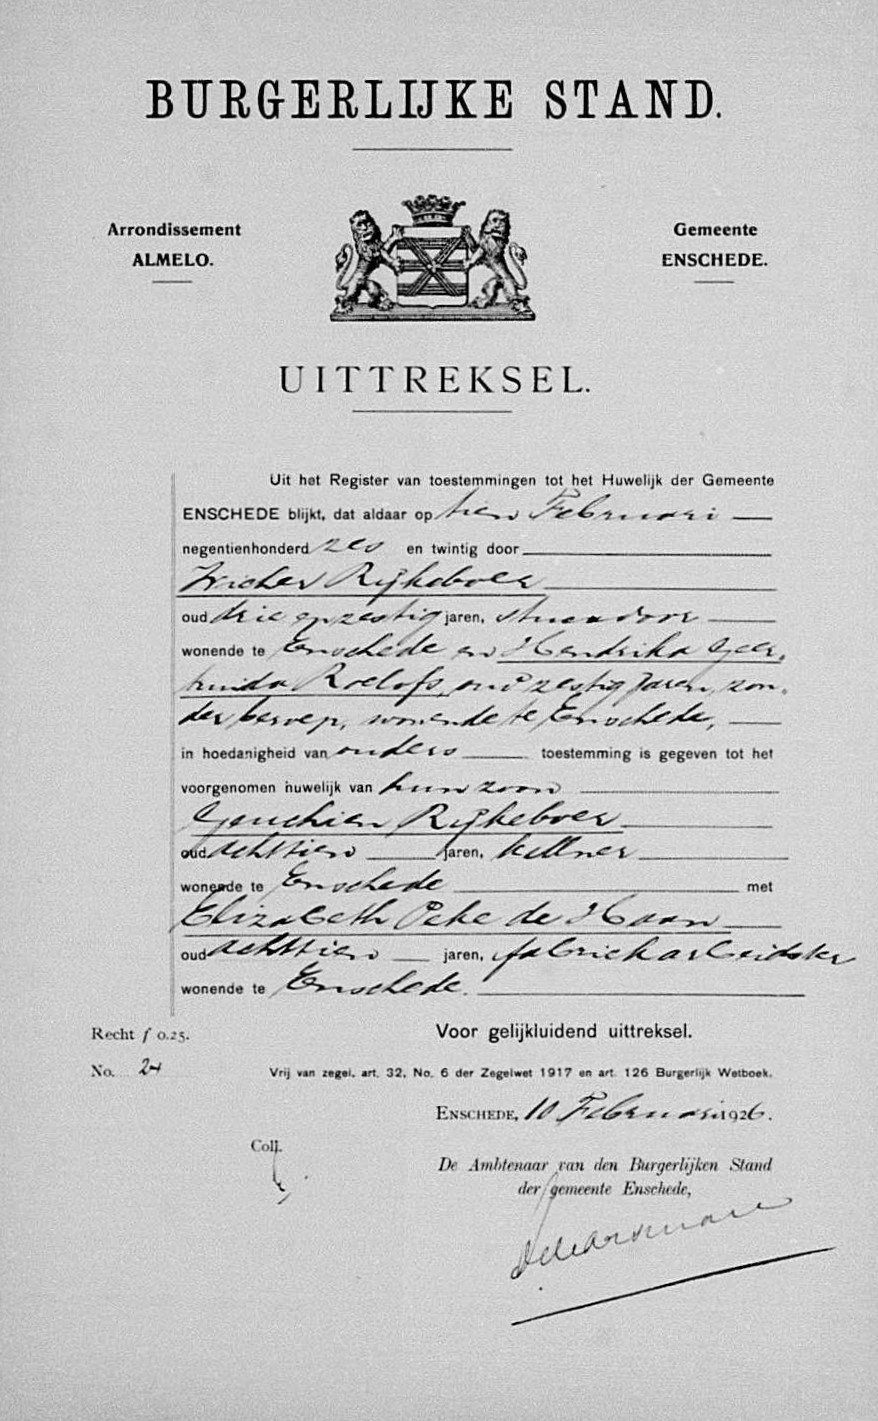 BURGERLIJKE STAND.
Arrondissement
ALMELO.
Gemeente
ENSCHEDE.
UITTREKSEL.
Uit het Register van toestemmingen tot het Huwelijk der Gemeente
ENSCHEDE blijkt, dat aldaar op tien Februari
negentienhonderd zes en twintig door
Wicher Rijkeboer
oud drie en zestig jaren,
wonende te Enschede en Hendrika Geer-
truida Roelofs, oud zestig jaren, zon-
der beroep, wonende te Enschede,
in hoedanigheid van ouders toestemming is gegeven tot het
voorgenomen huwelijk van hun zoon
Geuchien Rijkeboer
oud achttien jaren, kellner
wonende te Enschede met
Elizabeth Peke de Haan
oud achttien jaren, fabriekarbeidster
wonende te Enschede.
Recht f 0.25.
Voor gelijkluidend uittreksel.
No. 24
Vrij van zegel, art. 32, No. 6 der Zegelwet 1917 en art. 126 Burgerlijk Wetboek.
ENSCHEDE, 10 Februari 1926.
Coll.
De Ambtenaar van den Burgerlijken Stand
der gemeente Enschede,